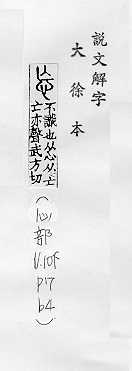 說文解字
大徐本
忘 不識也从心从亡
亡亦聲武方切
(心部 V.10F p17 b4)